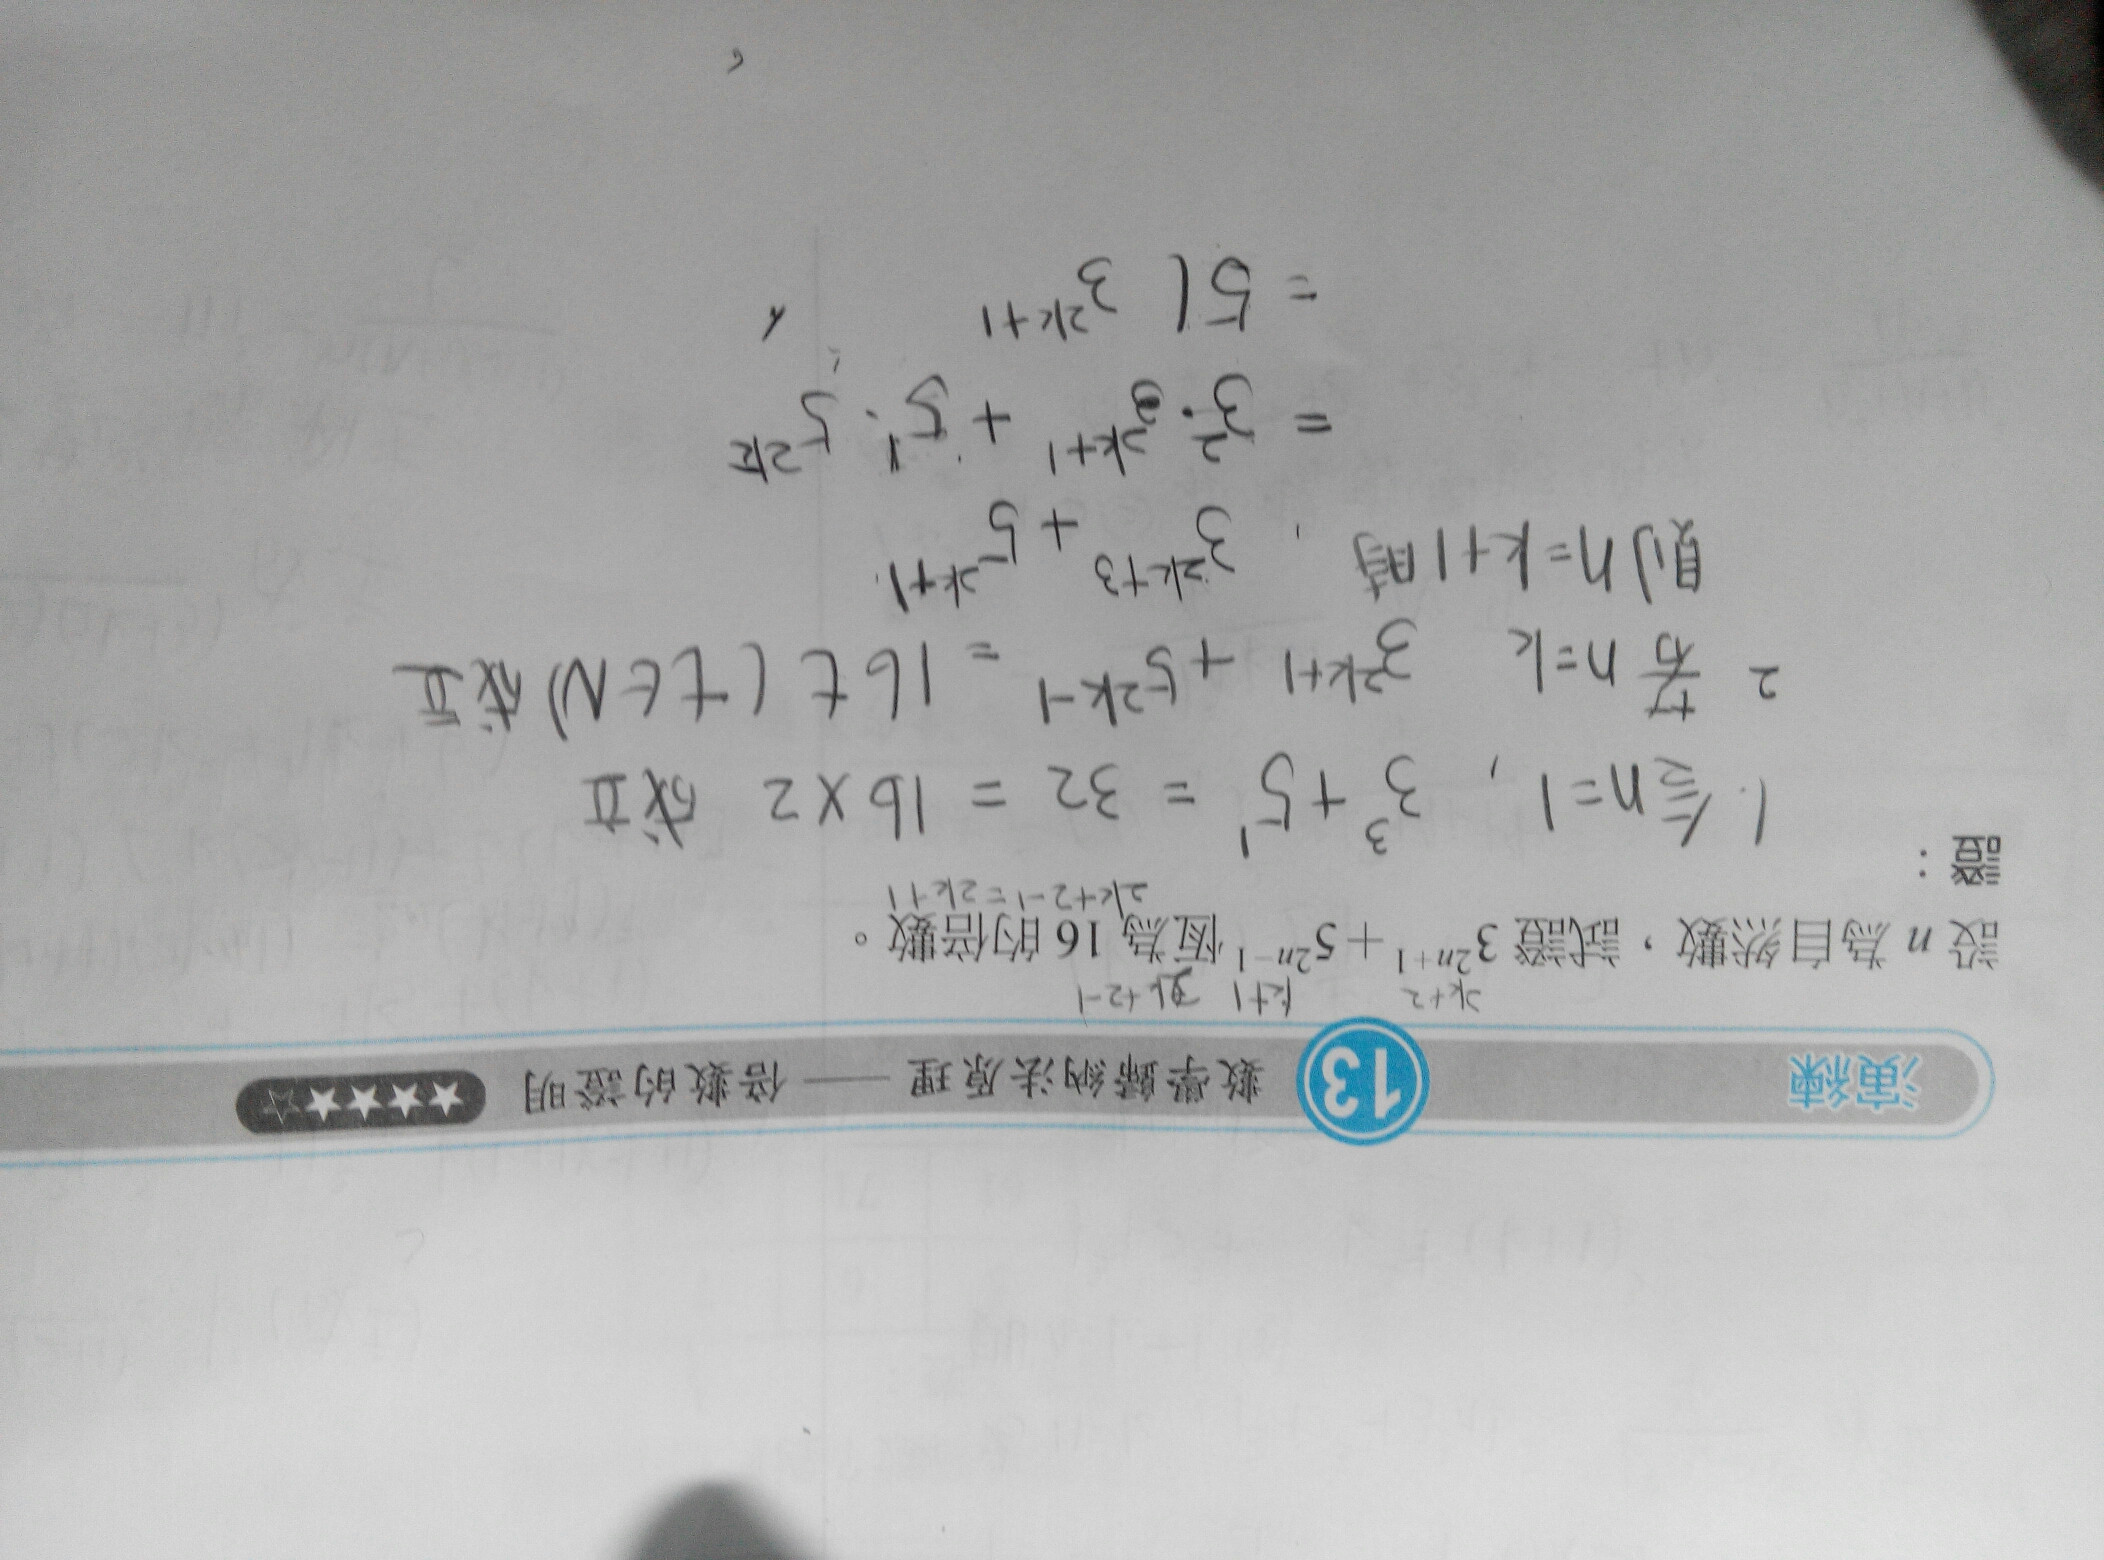 演練 13 數學歸納法原理——倍數的證明 ★★★★☆
2k+2 k+1 2k+2-1
設 n 為自然數,試證 3²ⁿ⁺¹+5²ⁿ⁻¹ 恆為 16 的倍數。
2k+2-1=2k+1
證:
1. 令n=1, 3³+5¹ = 32 = 16×2 成立
2 若n=k 3²ᵏ⁺¹+5²ᵏ⁻¹ = 16t (t∈N) 成立
則n=k+1時, 3²ᵏ⁺³+5²ᵏ⁺¹
= 3²·3²ᵏ⁺¹+5¹·5²ᵏ
= 5(3²ᵏ⁺¹